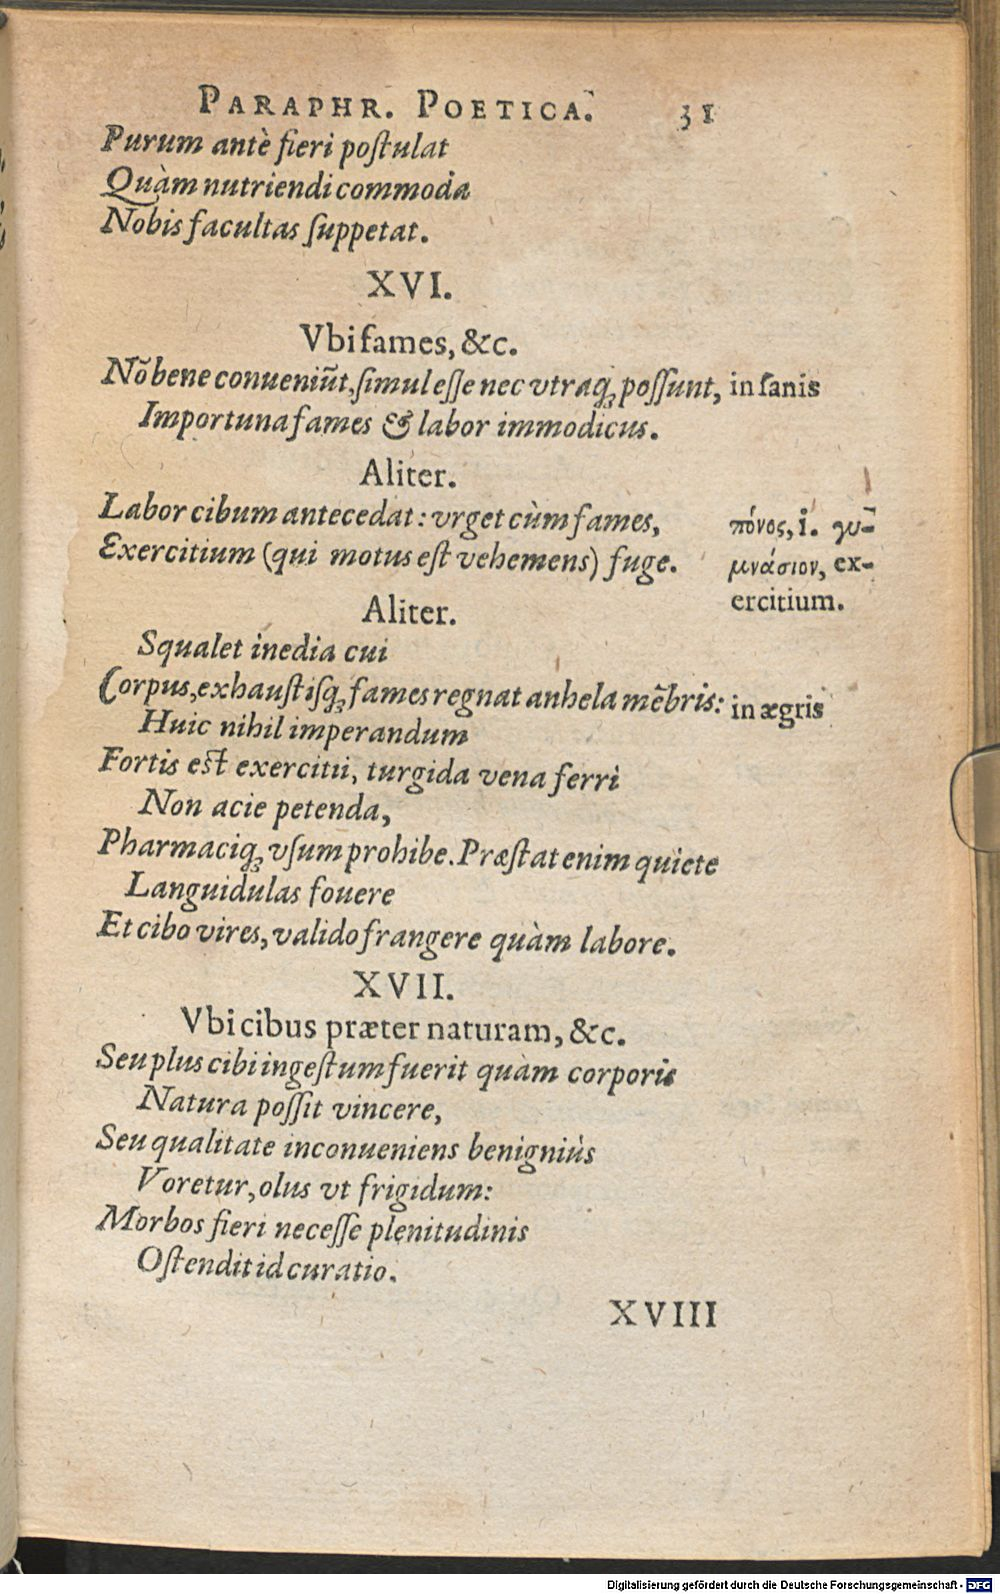 PARAPHR. POETICA. 31
Purum antè fieri poſtulat
Quàm nutriendi commoda
Nobis facultas ſuppetat.
XVI.
Vbi fames, &c.
Nō bene conueniūt, ſimul eſſe nec vtraq; poſſunt, in ſanis
Importuna fames & labor immodicus.
Aliter.
Labor cibum antecedat: vrget cùm fames,
πόνος, i. γυ-
Exercitium (qui motus eſt vehemens) fuge.
μνάσιον, ex-
ercitium.
Aliter.
Squalet inedia cui
Corpus, exhauſtiſq; fames regnat anhela mēbris:
in ægris
Huic nihil imperandum
Fortis eſt exercitii, turgida vena ferri
Non acie petenda,
Pharmaciq; vſum prohibe. Præſtat enim quiete
Languidulas fouere
Et cibo vires, valido frangere quàm labore.
XVII.
Vbi cibus præter naturam, &c.
Seu plus cibi ingeſtum fuerit quàm corporis
Natura poſſit vincere,
Seu qualitate inconueniens benigniùs
Voretur, olus vt frigidum:
Morbos fieri neceſſe plenitudinis
Oſtendit id curatio.
XVIII
Digitalisierung gefördert durch die Deutsche Forschungsgemeinschaft - DFG